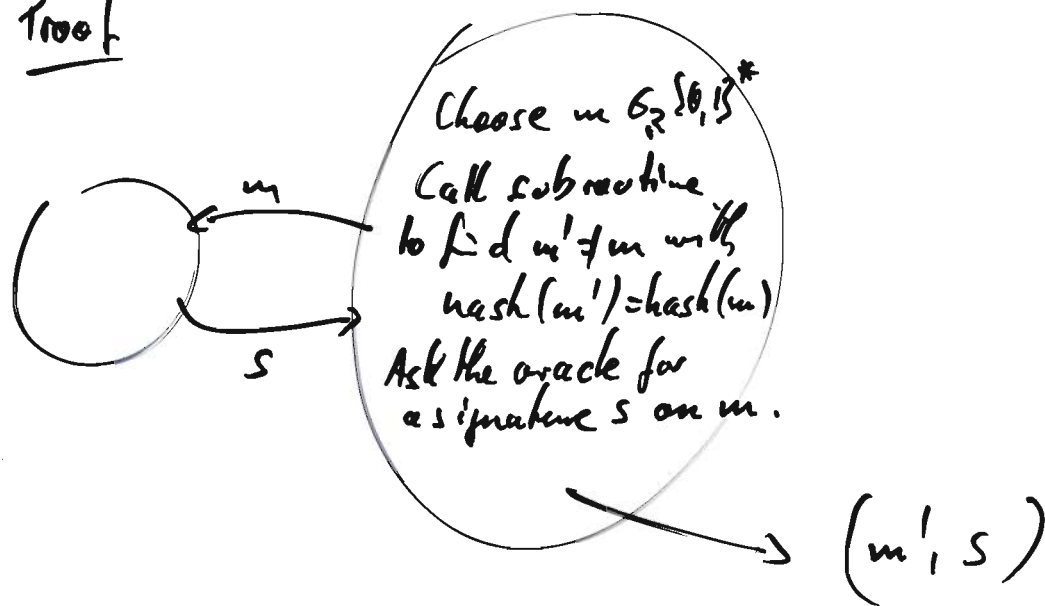 Proof
Choose m ∈_R {0,1}*
Call subroutine
to find m' ≠ m with
hash(m') = hash(m)
Ask the oracle for
a signature s on m.
m
s
(m', s)